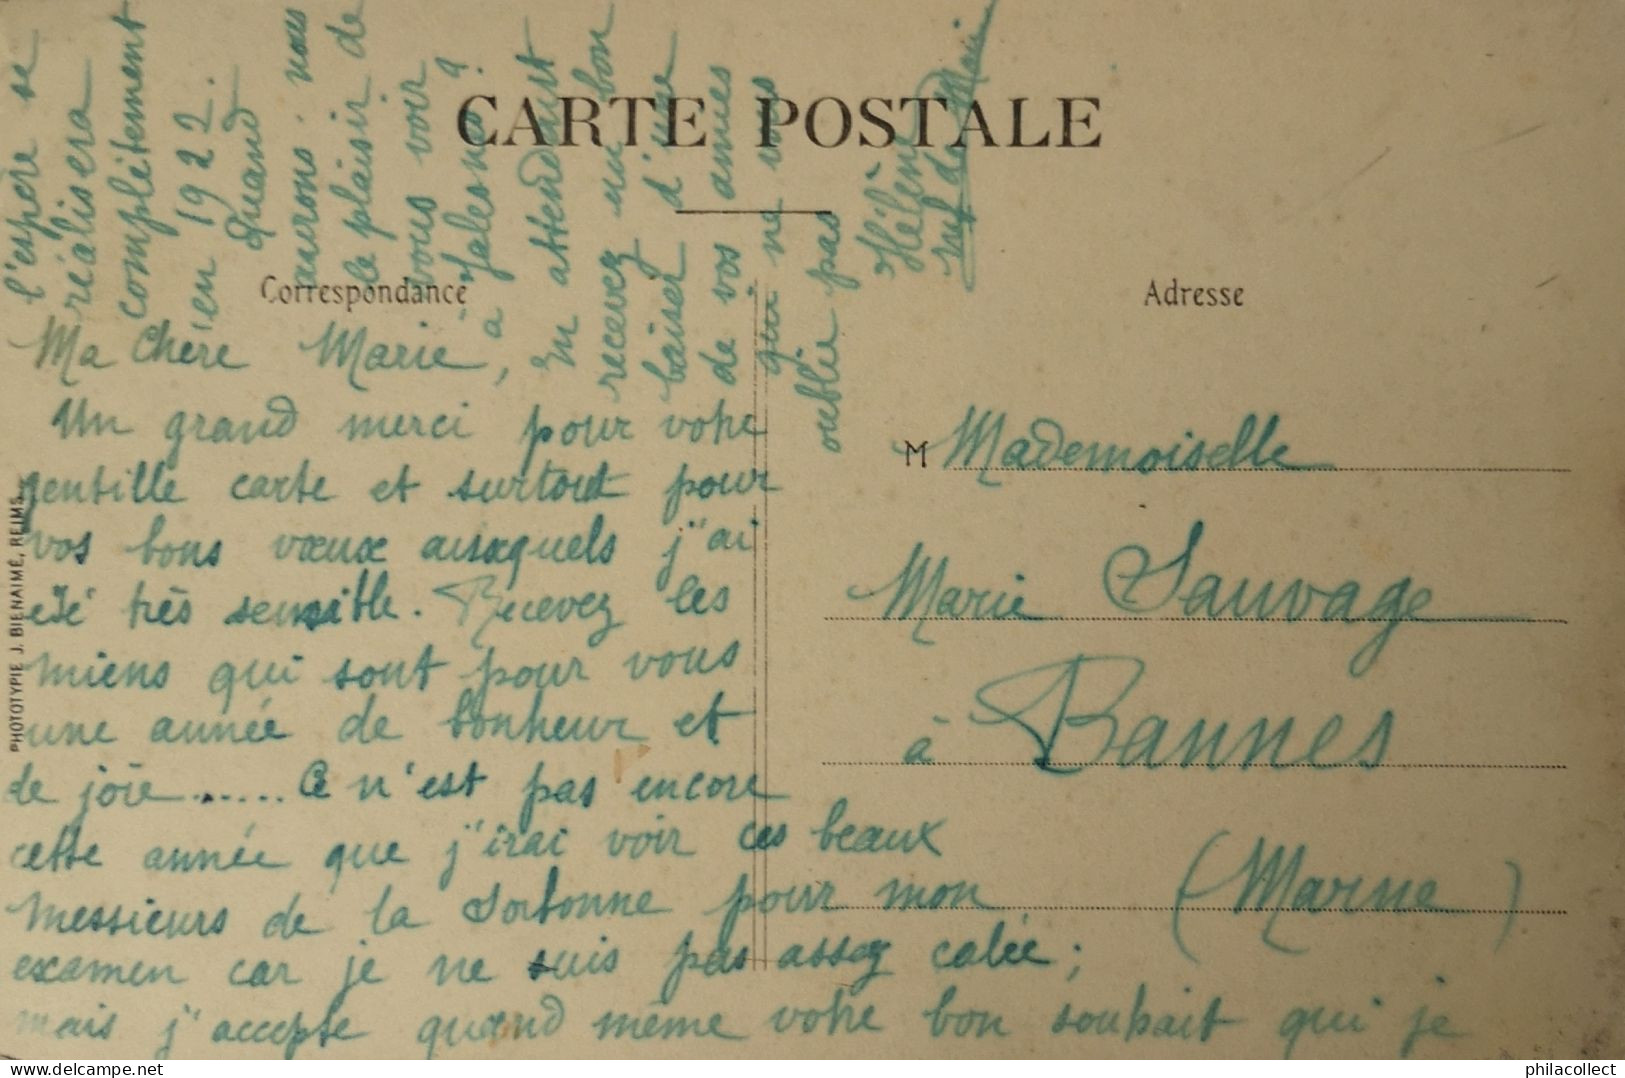 CARTE POSTALE
Correspondance
Adresse
Ma Chère Marie,
Un grand merci pour votre
gentille carte et surtout pour
vos bons vœux auxquels j'ai
été très sensible. Recevez les
miens qui sont pour vous
une année de bonheur et
de joie...... Ce n'est pas encore
cette année que j'irai voir ces beaux
Messieurs de la Sorbonne pour mon
examen car je ne suis pas assez calée ;
mais j'accepte quand même votre bon souhait qui je
l'espère se
réalisera
complètement
en 1922.
Quand
aurons-nous
le plaisir de
vous voir
à Jalons ?
En attendant
recevez un bon
baiser d'une
de vos amies
qui ne vous
oublie pas
Hélène
M Mademoiselle
Marie Sauvage
à Bannes
(Marne)
PHOTOTYPIE J. BIENAIMÉ, REIMS
philacollect